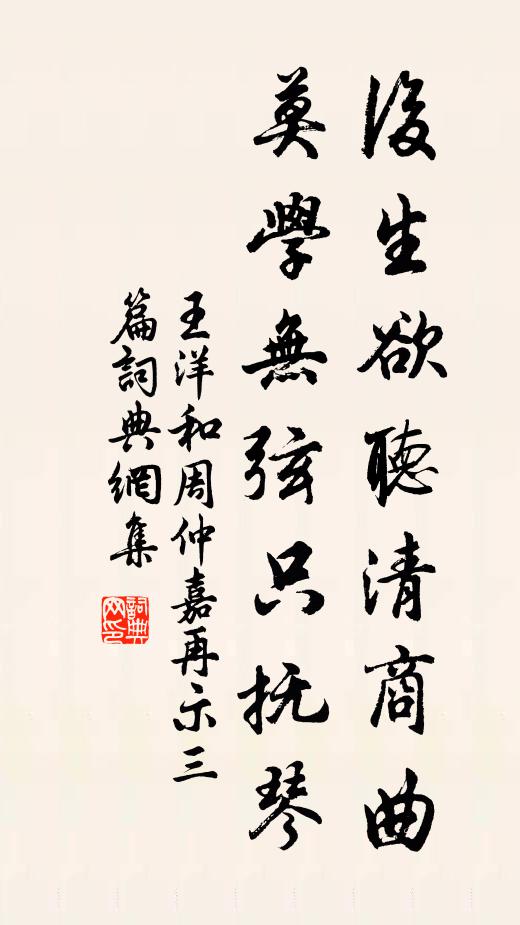 後生欲聽清商曲
莫學無弦只抚琴
王洋和周仲嘉再示三
篇詞典網集
詞典网印